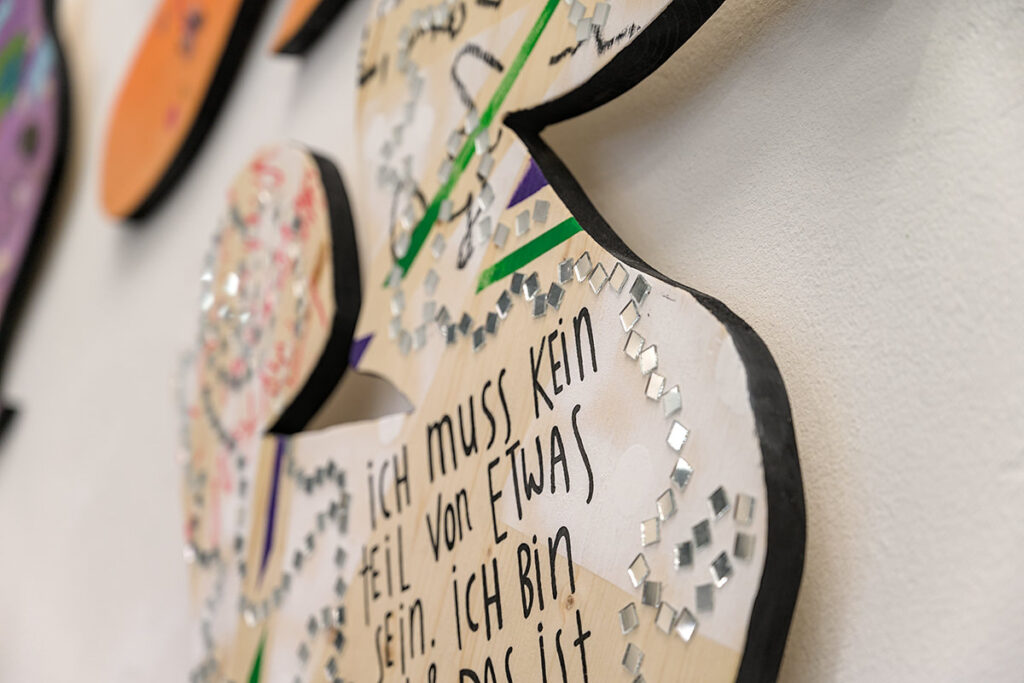 iCH muss KEiN
tEiL VoN EtWAS
SEiN. iCH BiN
& DAS iSt